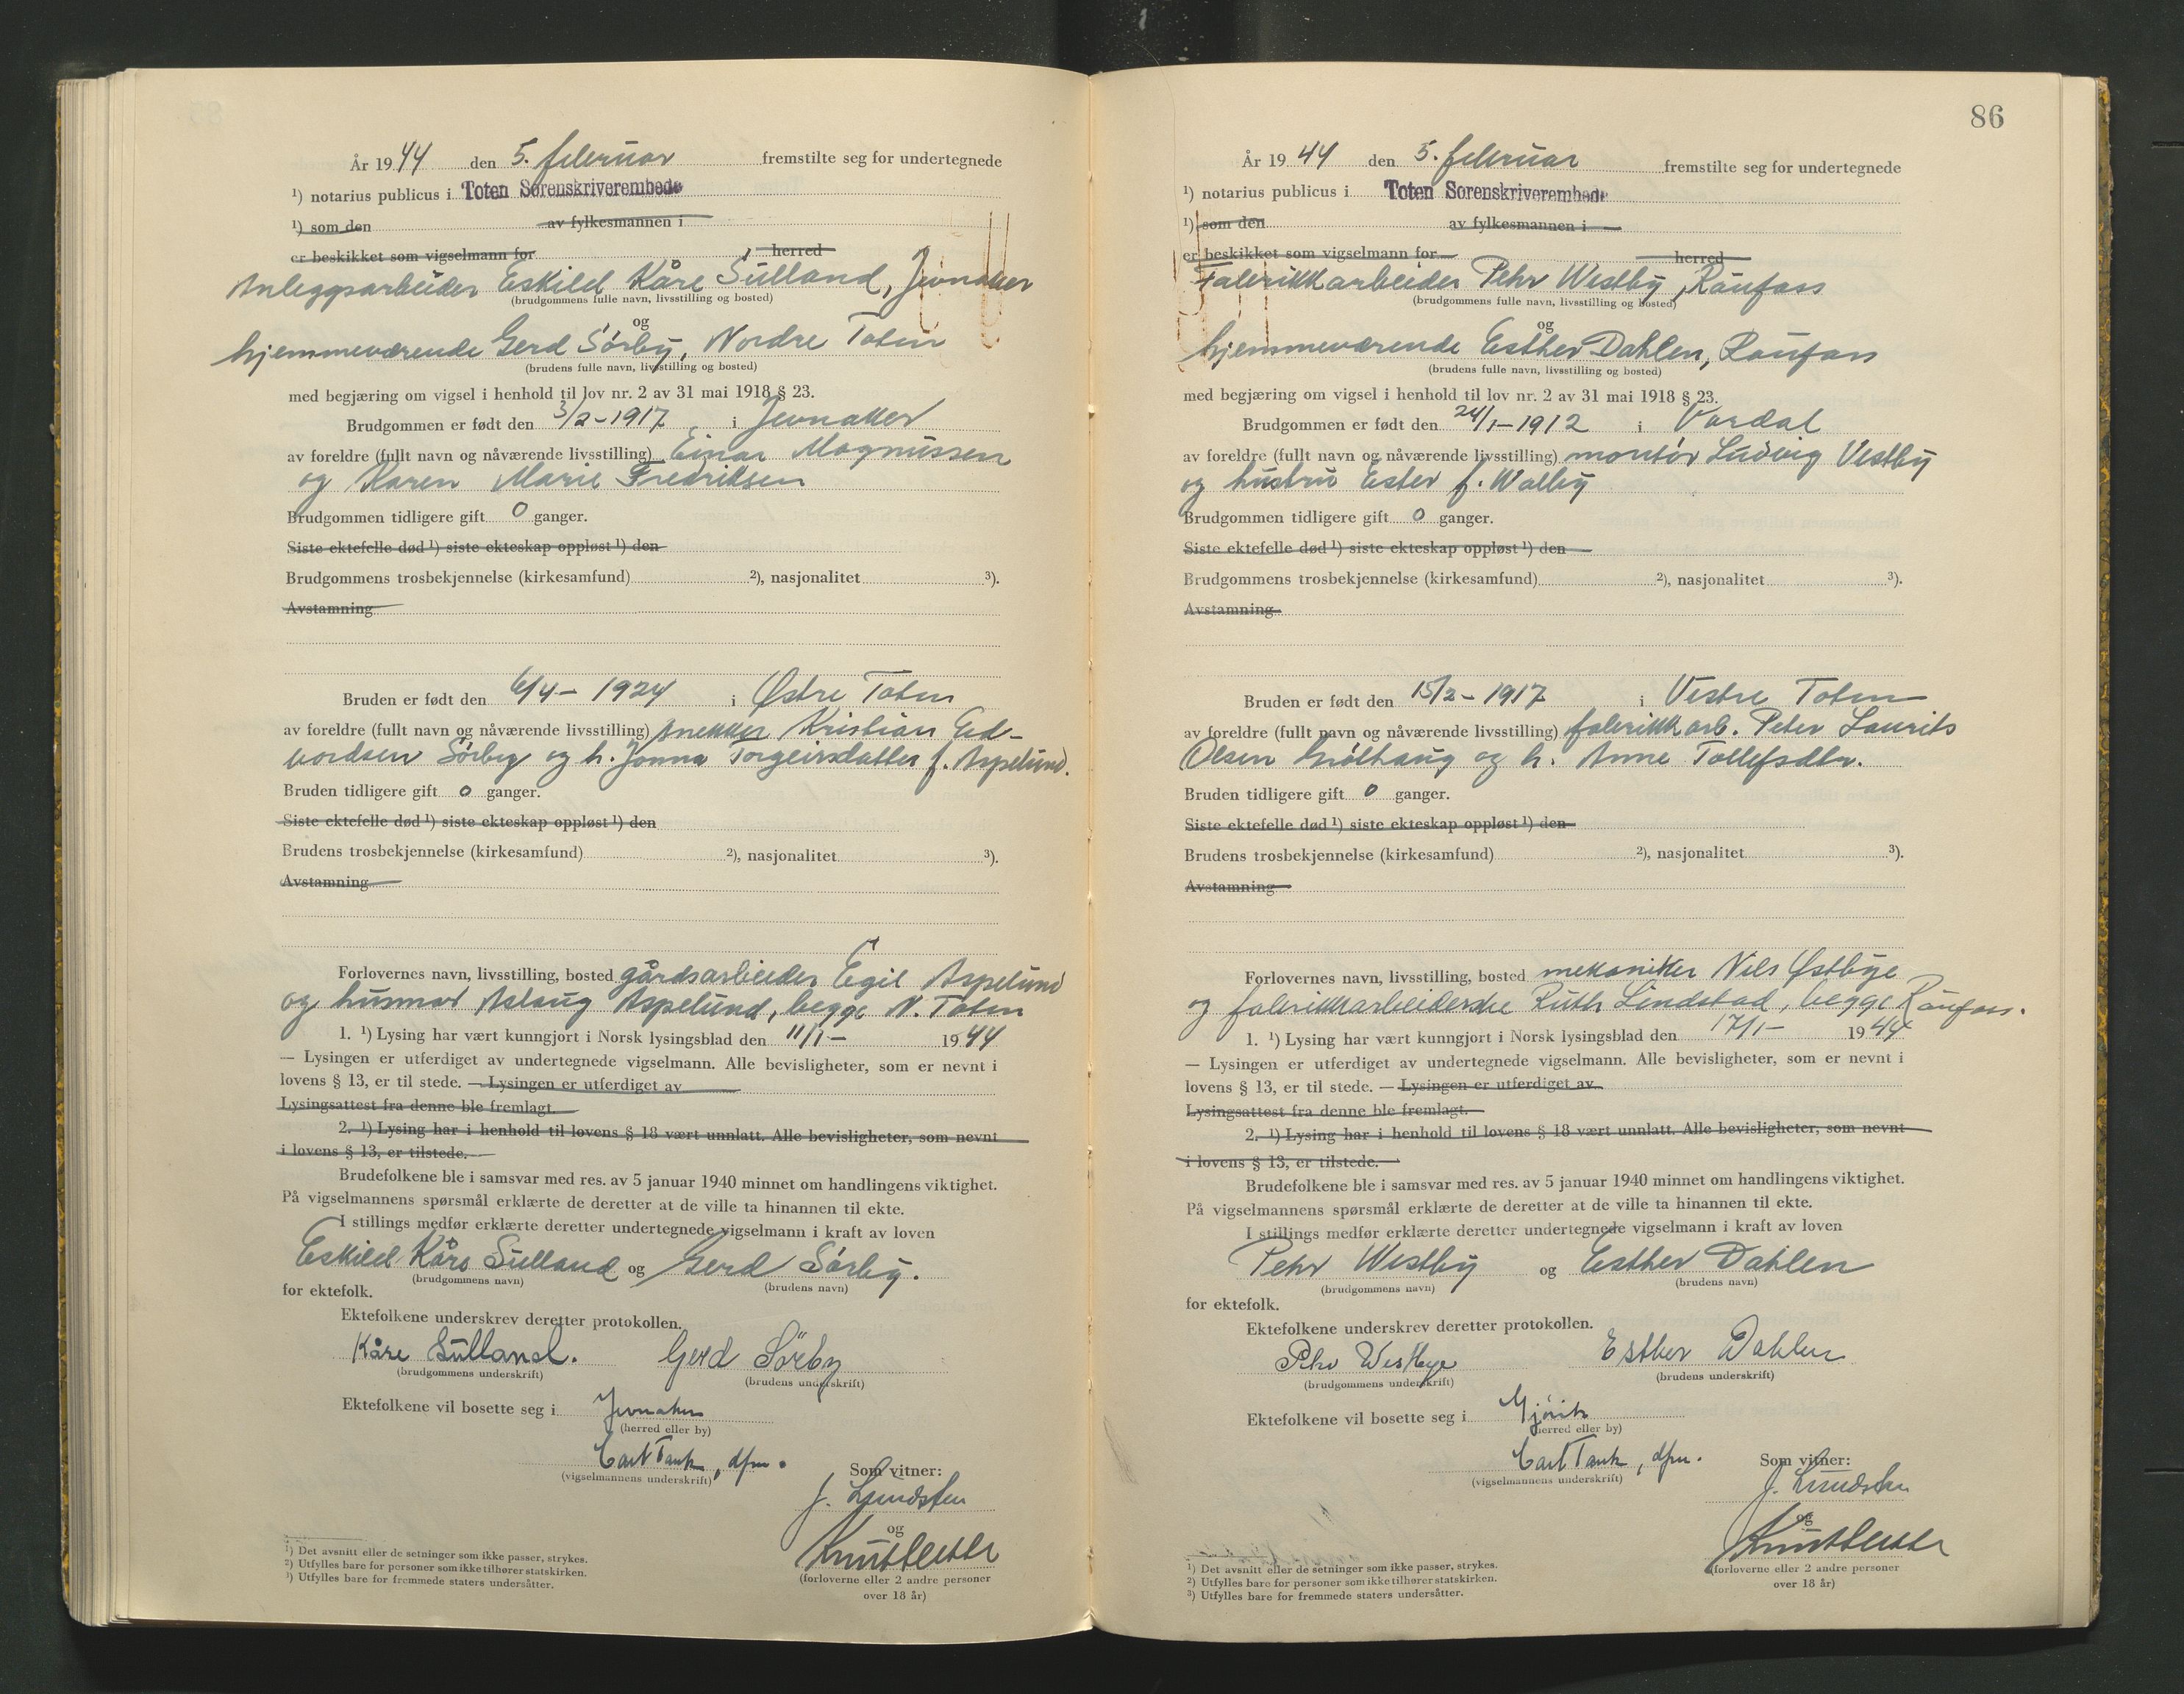 År 1944 den 5. februar fremstilte seg for undertegnede
¹) notarius publicus i Toten Sorenskriverembede
¹) som den av fylkesmannen i
er beskikket som vigselmann for herred
Anleggsarbeider Eskild Kåre Sulland, Jevnaker
(brudgommens fulle navn, livsstilling og bosted)
og
hjemmeværende Gerd Sörby, Nordre Toten
(brudens fulle navn, livsstilling og bosted)
med begjæring om vigsel i henhold til lov nr. 2 av 31 mai 1918 § 23.
Brudgommen er født den 3/2-1917 i Jevnaker
av foreldre (fullt navn og nåværende livsstilling) Einar Magnussen
og Karen Marie Fredriksen
Brudgommen tidligere gift 0 ganger.
Siste ektefelle død ¹) siste ekteskap oppløst ¹) den
Brudgommens trosbekjennelse (kirkesamfund) ²), nasjonalitet ³).
Avstamning
Bruden er født den 6/4- 1924 i Østre Toten
av foreldre (fullt navn og nåværende livsstilling) snekker Kristian Ed-
vardsen Sørby og h. Jonna Torgeirsdatter f. Aspelund.
Bruden tidligere gift 0 ganger.
Siste ektefelle død ¹) siste ekteskap oppløst ¹) den
Brudens trosbekjennelse (kirkesamfund) ²), nasjonalitet ³).
Avstamning
Forlovernes navn, livsstilling, bosted gårdsarbeider Egil Aspelund
og husmor Aslaug Aspelund, begge N. Toten
1. ¹) Lysing har vært kunngjort i Norsk lysingsblad den 11/1- 1944
— Lysingen er utferdiget av undertegnede vigselmann. Alle bevisligheter, som er nevnt i
lovens § 13, er til stede. — Lysingen er utferdiget av
Lysingsattest fra denne ble fremlagt.
2. ¹) Lysing har i henhold til lovens § 18 vært unnlatt. Alle bevisligheter, som nevnt
i lovens § 13, er tilstede.
Brudefolkene ble i samsvar med res. av 5 januar 1940 minnet om handlingens viktighet.
På vigselmannens spørsmål erklærte de deretter at de ville ta hinannen til ekte.
I stillings medfør erklærte deretter undertegnede vigselmann i kraft av loven
Eskild Kåre Sulland og Gerd Sörby.
(brudgommens navn) (brudens navn)
for ektefolk.
Ektefolkene underskrev deretter protokollen.
Kåre Sulland. Gerd Sörby
(brudgommens underskrift) (brudens underskrift)
Ektefolkene vil bosette seg i Jevnaker
(herred eller by)
Carl Tank, dfm.
(vigselmannens underskrift)
Som vitner:
J. Lundsten
og
(forloverne eller 2 andre personer
over 18 år)
¹) Det avsnitt eller de setninger som ikke passer, strykes.
²) Utfylles bare for personer som ikke tilhører statskirken.
³) Utfylles bare for fremmede staters undersåtter.
86
År 1944 den 5. februar fremstilte seg for undertegnede
¹) notarius publicus i Toten Sorenskriverembede
¹) som den av fylkesmannen i
er beskikket som vigselmann for herred
Fabrikkarbeider Pehr Westby, Raufoss
(brudgommens fulle navn, livsstilling og bosted)
og
hjemmeværende Esther Dahlen, Raufoss
(brudens fulle navn, livsstilling og bosted)
med begjæring om vigsel i henhold til lov nr. 2 av 31 mai 1918 § 23.
Brudgommen er født den 24/1-1912 i Vardal
av foreldre (fullt navn og nåværende livsstilling) montör Ludvig Vestby
og hustru Ester f. Walby
Brudgommen tidligere gift 0 ganger.
Siste ektefelle død ¹) siste ekteskap oppløst ¹) den
Brudgommens trosbekjennelse (kirkesamfund) ²), nasjonalitet ³).
Avstamning
Bruden er født den 15/2- 1917 i Vestre Toten
av foreldre (fullt navn og nåværende livsstilling) fabrikkarb. Peter Laurits
Olsen og h. Anne Tollefsdtr.
Bruden tidligere gift 0 ganger.
Siste ektefelle død ¹) siste ekteskap oppløst ¹) den
Brudens trosbekjennelse (kirkesamfund) ²), nasjonalitet ³).
Avstamning
Forlovernes navn, livsstilling, bosted mekaniker Nils Østbye
og fabrikkarbeiderske Ruth Lindstad, begge Raufoss.
1. ¹) Lysing har vært kunngjort i Norsk lysingsblad den 17/1- 1944
— Lysingen er utferdiget av undertegnede vigselmann. Alle bevisligheter, som er nevnt i
lovens § 13, er til stede. — Lysingen er utferdiget av
Lysingsattest fra denne ble fremlagt.
2. ¹) Lysing har i henhold til lovens § 18 vært unnlatt. Alle bevisligheter, som nevnt
i lovens § 13, er tilstede.
Brudefolkene ble i samsvar med res. av 5 januar 1940 minnet om handlingens viktighet.
På vigselmannens spørsmål erklærte de deretter at de ville ta hinannen til ekte.
I stillings medfør erklærte deretter undertegnede vigselmann i kraft av loven
Pehr Westby og Esther Dahlen
(brudgommens navn) (brudens navn)
for ektefolk.
Ektefolkene underskrev deretter protokollen.
Pehr Westbye Esther Dahlen
(brudgommens underskrift) (brudens underskrift)
Ektefolkene vil bosette seg i Gjövik
(herred eller by)
Carl Tank, dfm.
(vigselmannens underskrift)
Som vitner:
J. Lundsten
og
(forloverne eller 2 andre personer
over 18 år)
¹) Det avsnitt eller de setninger som ikke passer, strykes.
²) Utfylles bare for personer som ikke tilhører statskirken.
³) Utfylles bare for fremmede staters undersåtter.